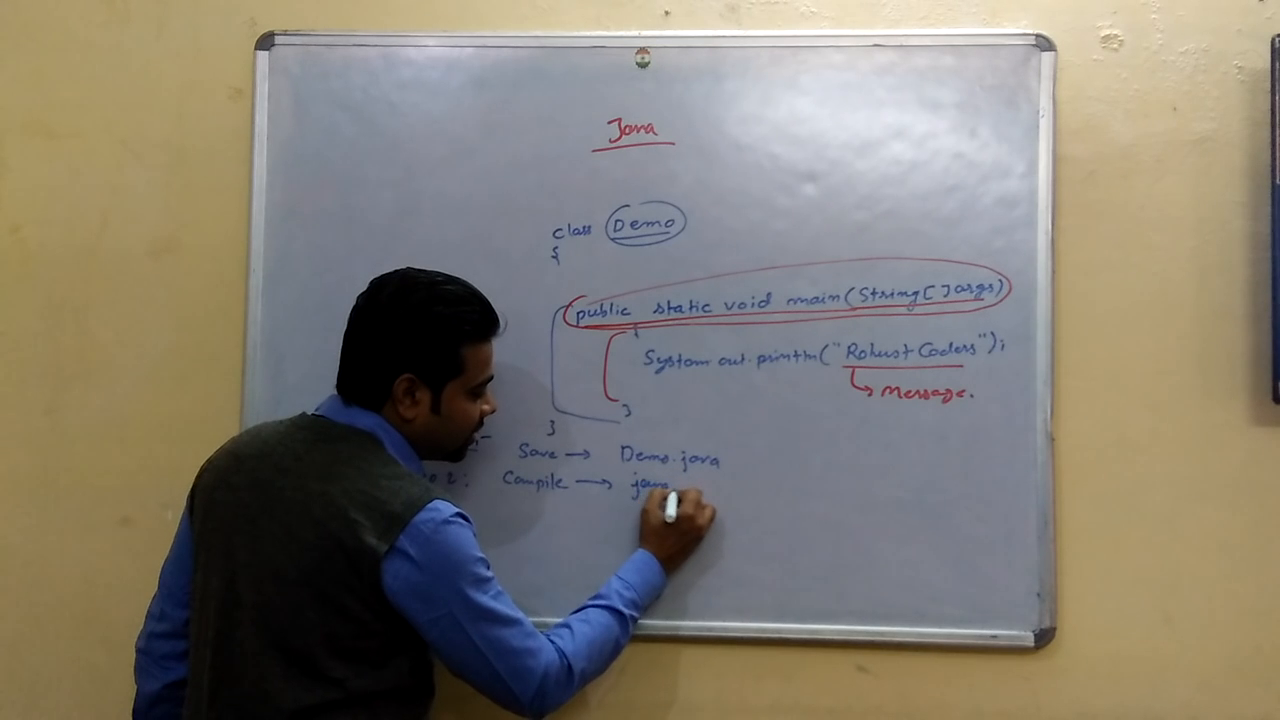 Java
class Demo
{
public static void main(String[] args)
{
System.out.println("Robust Coders");
Message.
}
}
Save → Demo.java
2: Compile → java